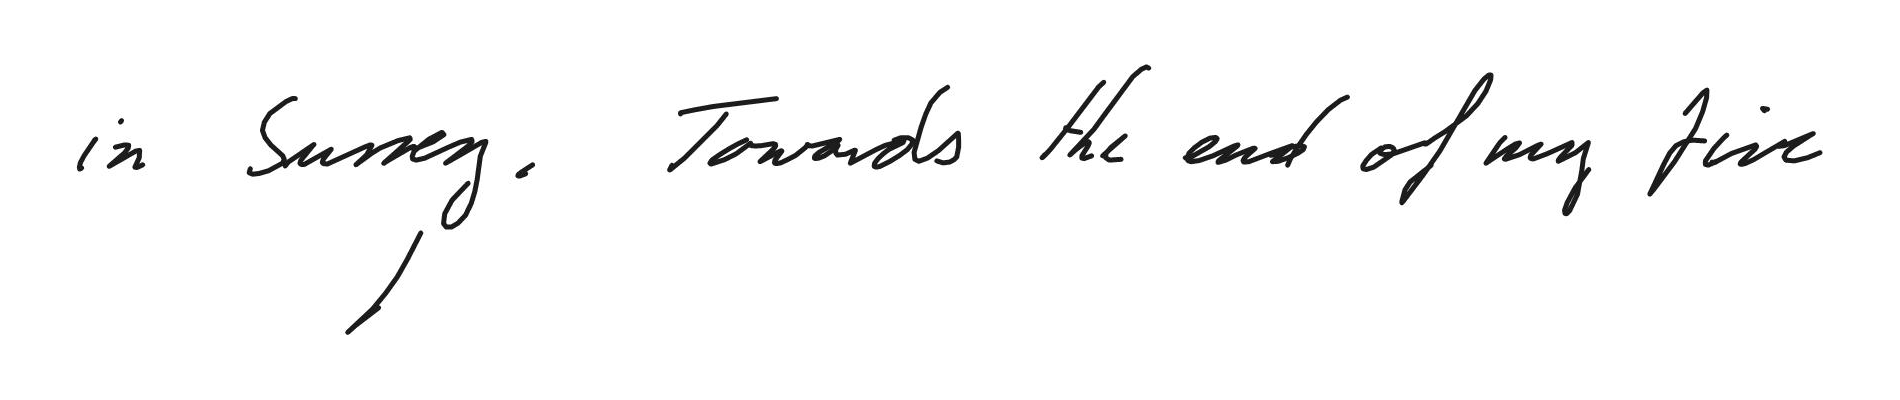 in Surrey. Towards the end of my five